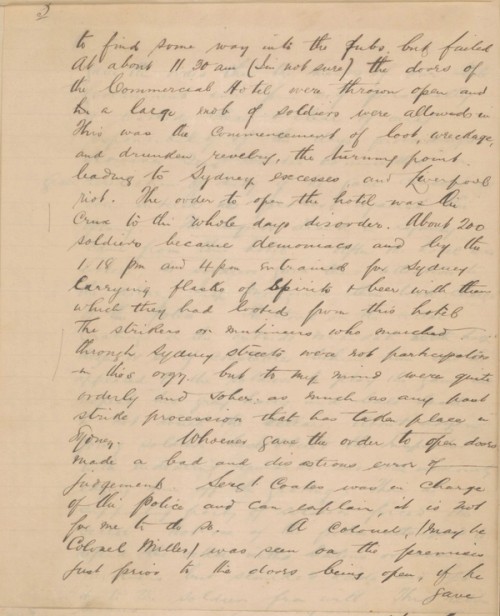 2
to find some way into the pubs. but failed
At about 11 30 am (I'm not sure) the doors of
the Commercial Hotel were thrown open and
a large mob of soldiers were allowed in
This was the commencement of loot, wreckage,
and drunken revelry, the turning point
leading to Sydney excesses, and Liverpool
riot. The order to open the hotel was the
Crux to the whole days disorder. About 200
soldiers became demoniacs and by the
1.18 pm and 4 pm entrained for Sydney
Carrying flasks of spirits & beer with them
which they had looted from this hotel
The strikers or mutineers who marched
through Sydney streets were not participators
in this orgy. but to my mind were quite
orderly and sober. as much as any past
strike procession that has taken place in
Sydney. Whoever gave the order to open doors
made a bad and disastrous error of
judgement. Sergt Coates was in charge
of the police and can explain, it is not
for me to do so. A Colonel, (may be
Colonel Miller) was seen on the premises
just prior to the doors being open, if he
gave